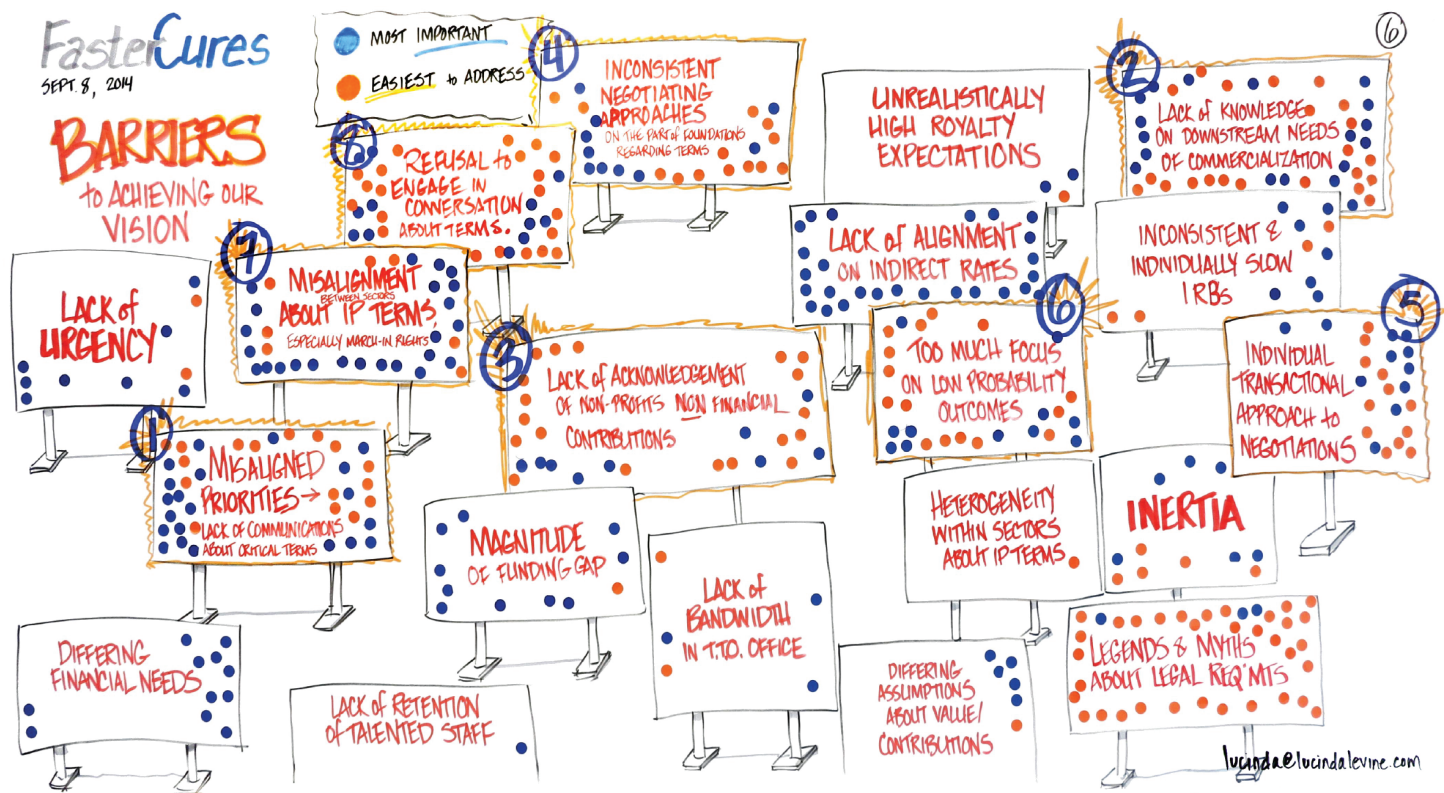 FasterCures
SEPT. 8, 2014
BARRIERS
to ACHIEVING OUR
VISION
MOST IMPORTANT
EASIEST to ADDRESS
4
INCONSISTENT
NEGOTIATING
APPROACHES
ON THE PART of FOUNDATIONS
REGARDING TERMS
UNREALISTICALLY
HIGH ROYALTY
EXPECTATIONS
6
2
LACK of KNOWLEDGE
ON DOWNSTREAM NEEDS
OF COMMERCIALIZATION
8
REFUSAL to
ENGAGE IN
CONVERSATION
ABOUT TERMS.
LACK of ALIGNMENT
ON INDIRECT RATES
INCONSISTENT &
INDIVIDUALLY SLOW
IRBs
LACK of
URGENCY
7
MISALIGNMENT
BETWEEN SECTORS
ABOUT IP TERMS,
ESPECIALLY MARCH-IN RIGHTS
3
LACK of ACKNOWLEDGEMENT
OF NON-PROFITS NON FINANCIAL
CONTRIBUTIONS
6
TOO MUCH FOCUS
ON LOW PROBABILITY
OUTCOMES
5
INDIVIDUAL
TRANSACTIONAL
APPROACH to
NEGOTIATIONS
1
MISALIGNED
PRIORITIES →
LACK of COMMUNICATIONS
ABOUT CRITICAL TERMS
MAGNITUDE
OF FUNDING GAP
LACK of
BANDWIDTH
IN T.T.O. OFFICE
HETEROGENEITY
WITHIN SECTORS
ABOUT IP TERMS
INERTIA
DIFFERING
FINANCIAL NEEDS
LACK of RETENTION
of TALENTED STAFF
DIFFERING
ASSUMPTIONS
ABOUT VALUE/
CONTRIBUTIONS
LEGENDS & MYTHS
ABOUT LEGAL REQ'MTS
lucinda@lucindalevine.com